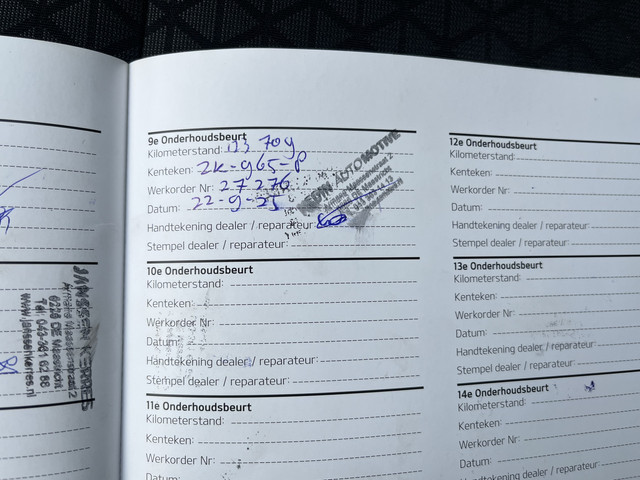 JANSSEN KERRES
6228 DE Maastricht
Tel: 043-361 62 88
www.janssenkerres.nl
9e Onderhoudsbeurt
Kilometerstand:
Kenteken: 2K-965-P
Werkorder Nr: 27276
Datum: 22-9-25
Handtekening dealer / reparateur:
Stempel dealer / reparateur:
AUTOMOTIVE
10e Onderhoudsbeurt
Kilometerstand:
Kenteken:
Werkorder Nr:
Datum:
Handtekening dealer / reparateur:
Stempel dealer / reparateur:
11e Onderhoudsbeurt
Kilometerstand:
Kenteken:
Werkorder Nr:
Datum:
12e Onderhoudsbeurt
Kilometerstand:
Kenteken:
Werkorder Nr:
Datum:
Handtekening dealer / reparateur:
Stempel dealer / reparateur:
13e Onderhoudsbeurt
Kilometerstand:
Kenteken:
Werkorder Nr:
Datum:
Handtekening dealer / reparateur:
Stempel dealer / reparateur:
14e Onderhoudsbeurt
Kilometerstand:
Kenteken:
Werkorder Nr:
Datum:
Handtekening dealer / reparateur: